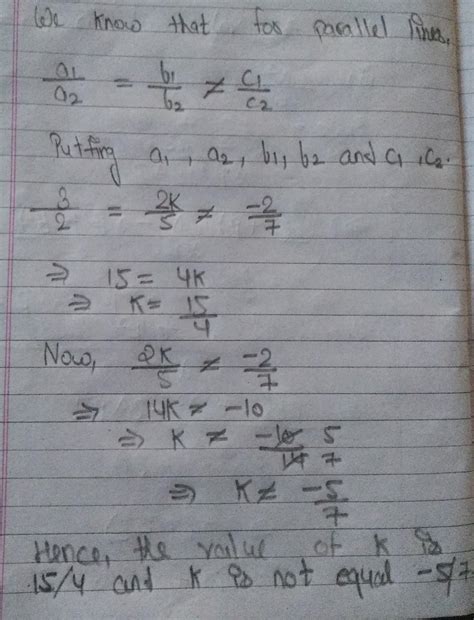 We know that for parallel lines,
a1/a2 = b1/b2 ≠ c1/c2
Putting a1, a2, b1, b2 and c1, c2.
3/2 = 2K/5 ≠ -2/7
⇒ 15 = 4K
⇒ K = 15/4
Now, 2K/5 ≠ -2/7
⇒ 14K ≠ -10
⇒ K ≠ -10/14 5/7
⇒ K ≠ -5/7
Hence, the value of K is
15/4 and K is not equal -5/7